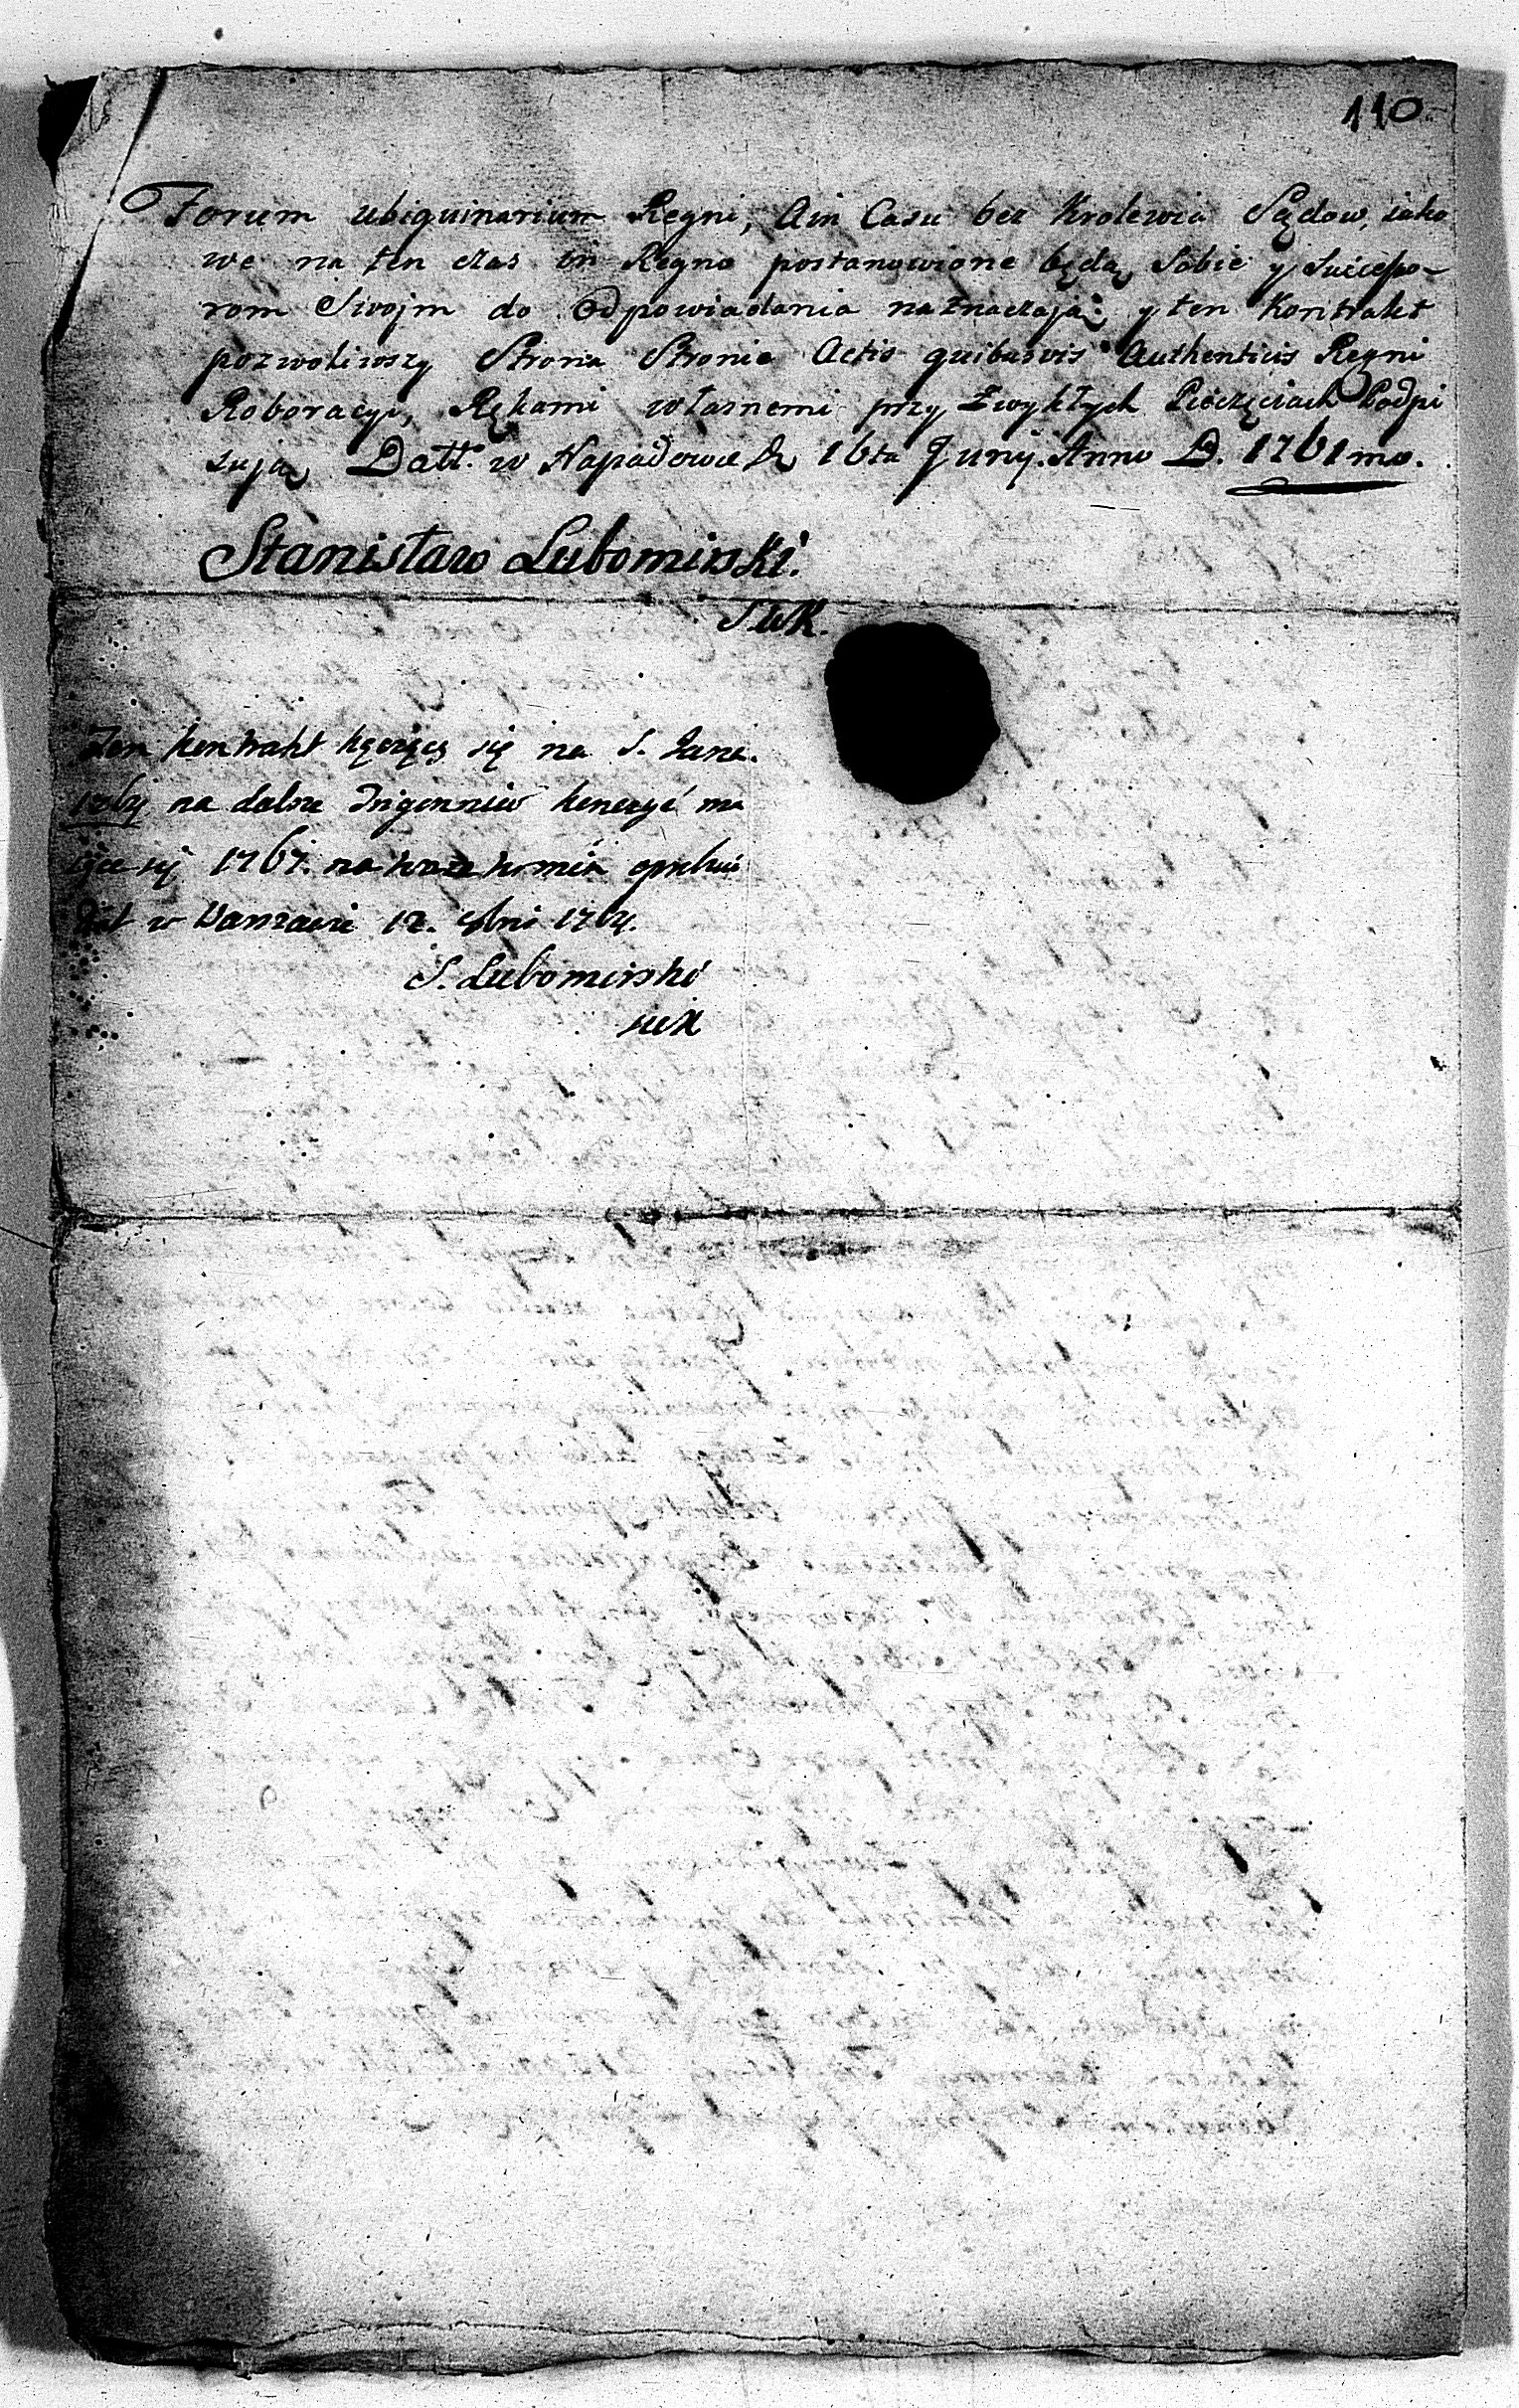 110
Forum ubiquinarium Regni, Ain Casu bez Krolewia Sędow, iako
we na ten czas in Regno postanowione będą, Sobie y Successo-
rom Swojm do Odpowiadania naznaczają: y ten Kontrakt
pozwoliwszy Strona Stronie Actis quibusvis Authenticis Regni
Roboracyi, Rękami własnemi przy Zwykłych Pieczęciach Podpi
sują, Datt. w Napadowce D 16ta Junij. Anno D. 1761mo.
Stanisław Lubomirski.
SWK.
Ten kontrakt kączący się na S. Jana.
1764 na dalsze konczyć ma
iące się 1767.
Dat w Warszawie 12. 1764.
S. Lubomirski